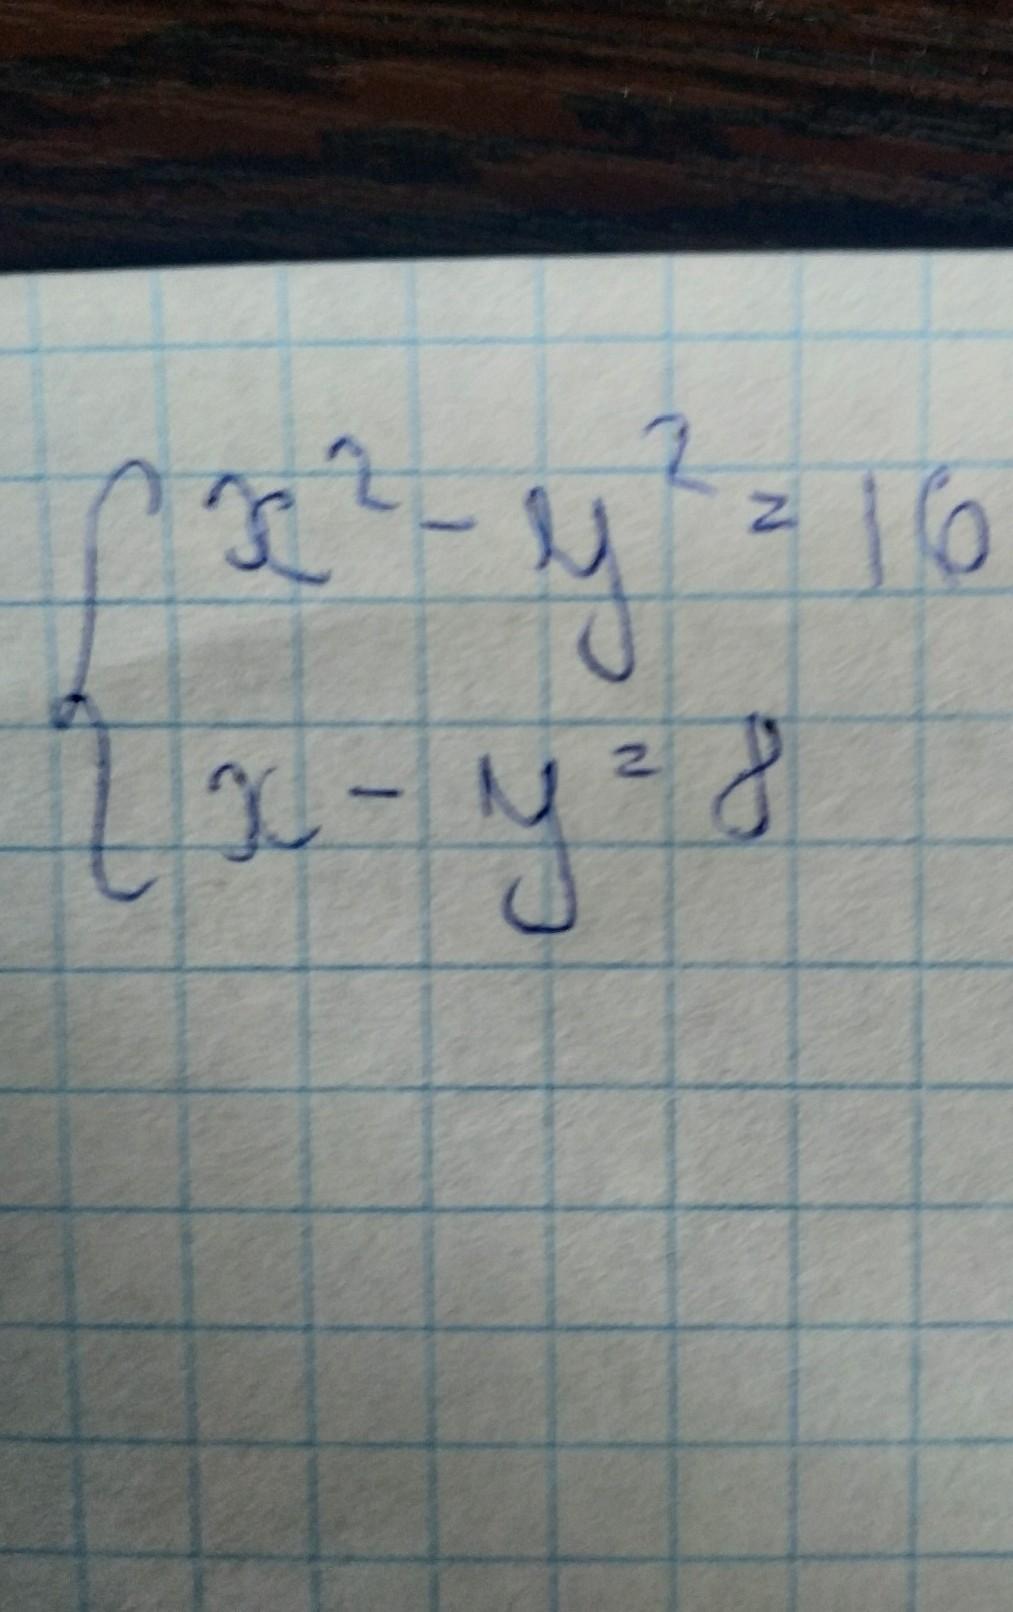 x² - y² = 16
x - y = 8